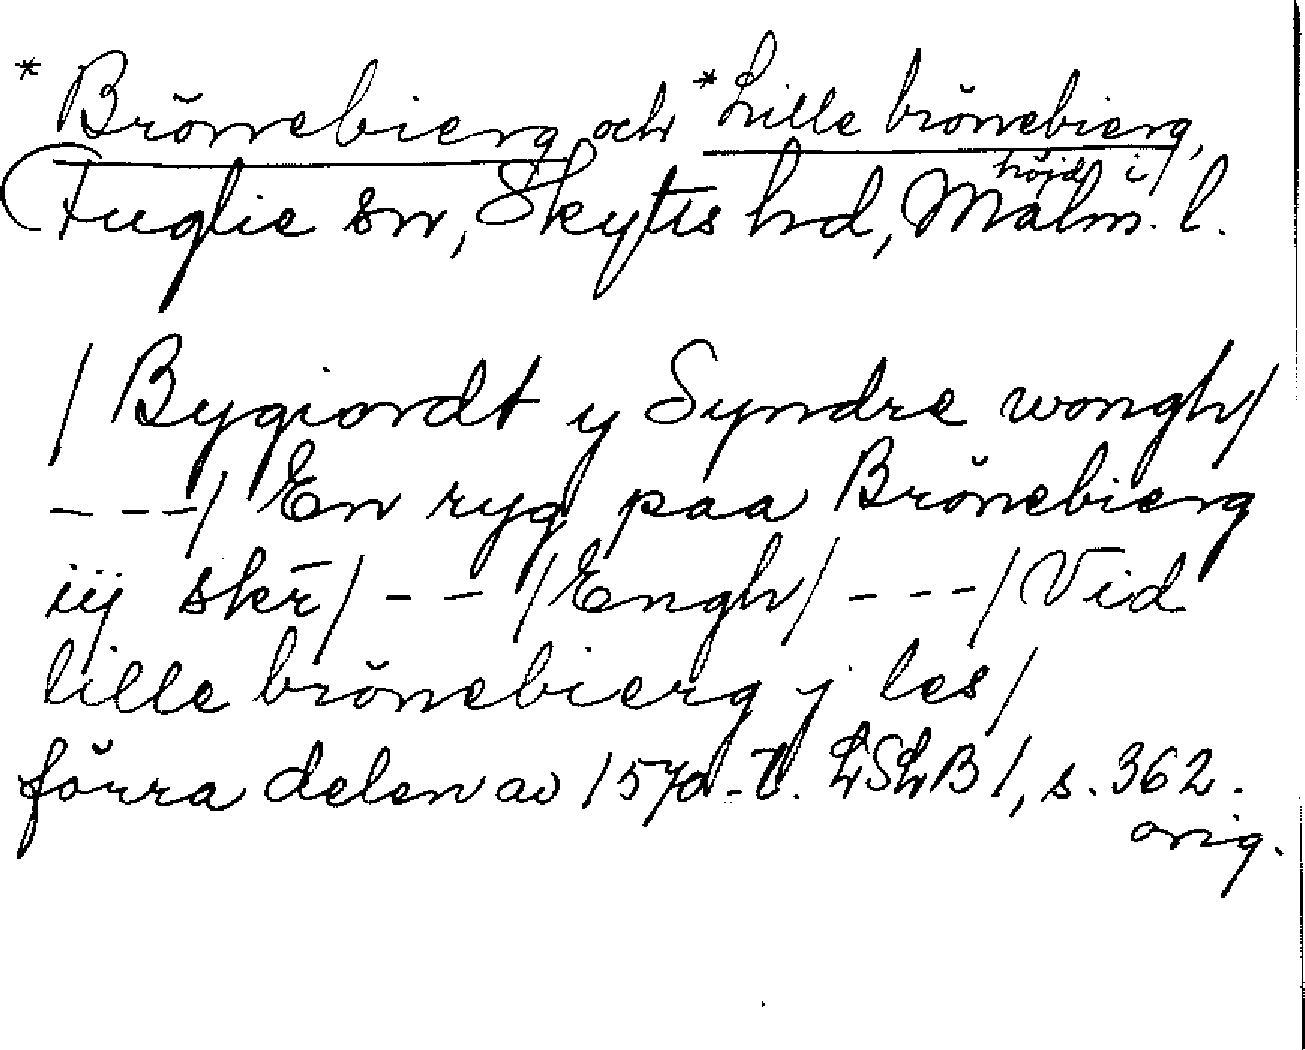 * Brŏnebierg och * Lille brŏnebierg,
höjd i
Fuglie sn, Skytts hd, Malm. l.
/ Bygiordt y Syndre wongh/
- - - / En ryg paa Brŏnebierg
iij skr̄ / - - / Engh / - - - / Vid
lille brŏnebierg j les /
förra delen av 1570-t. LSLB 1, s. 362.
orig.